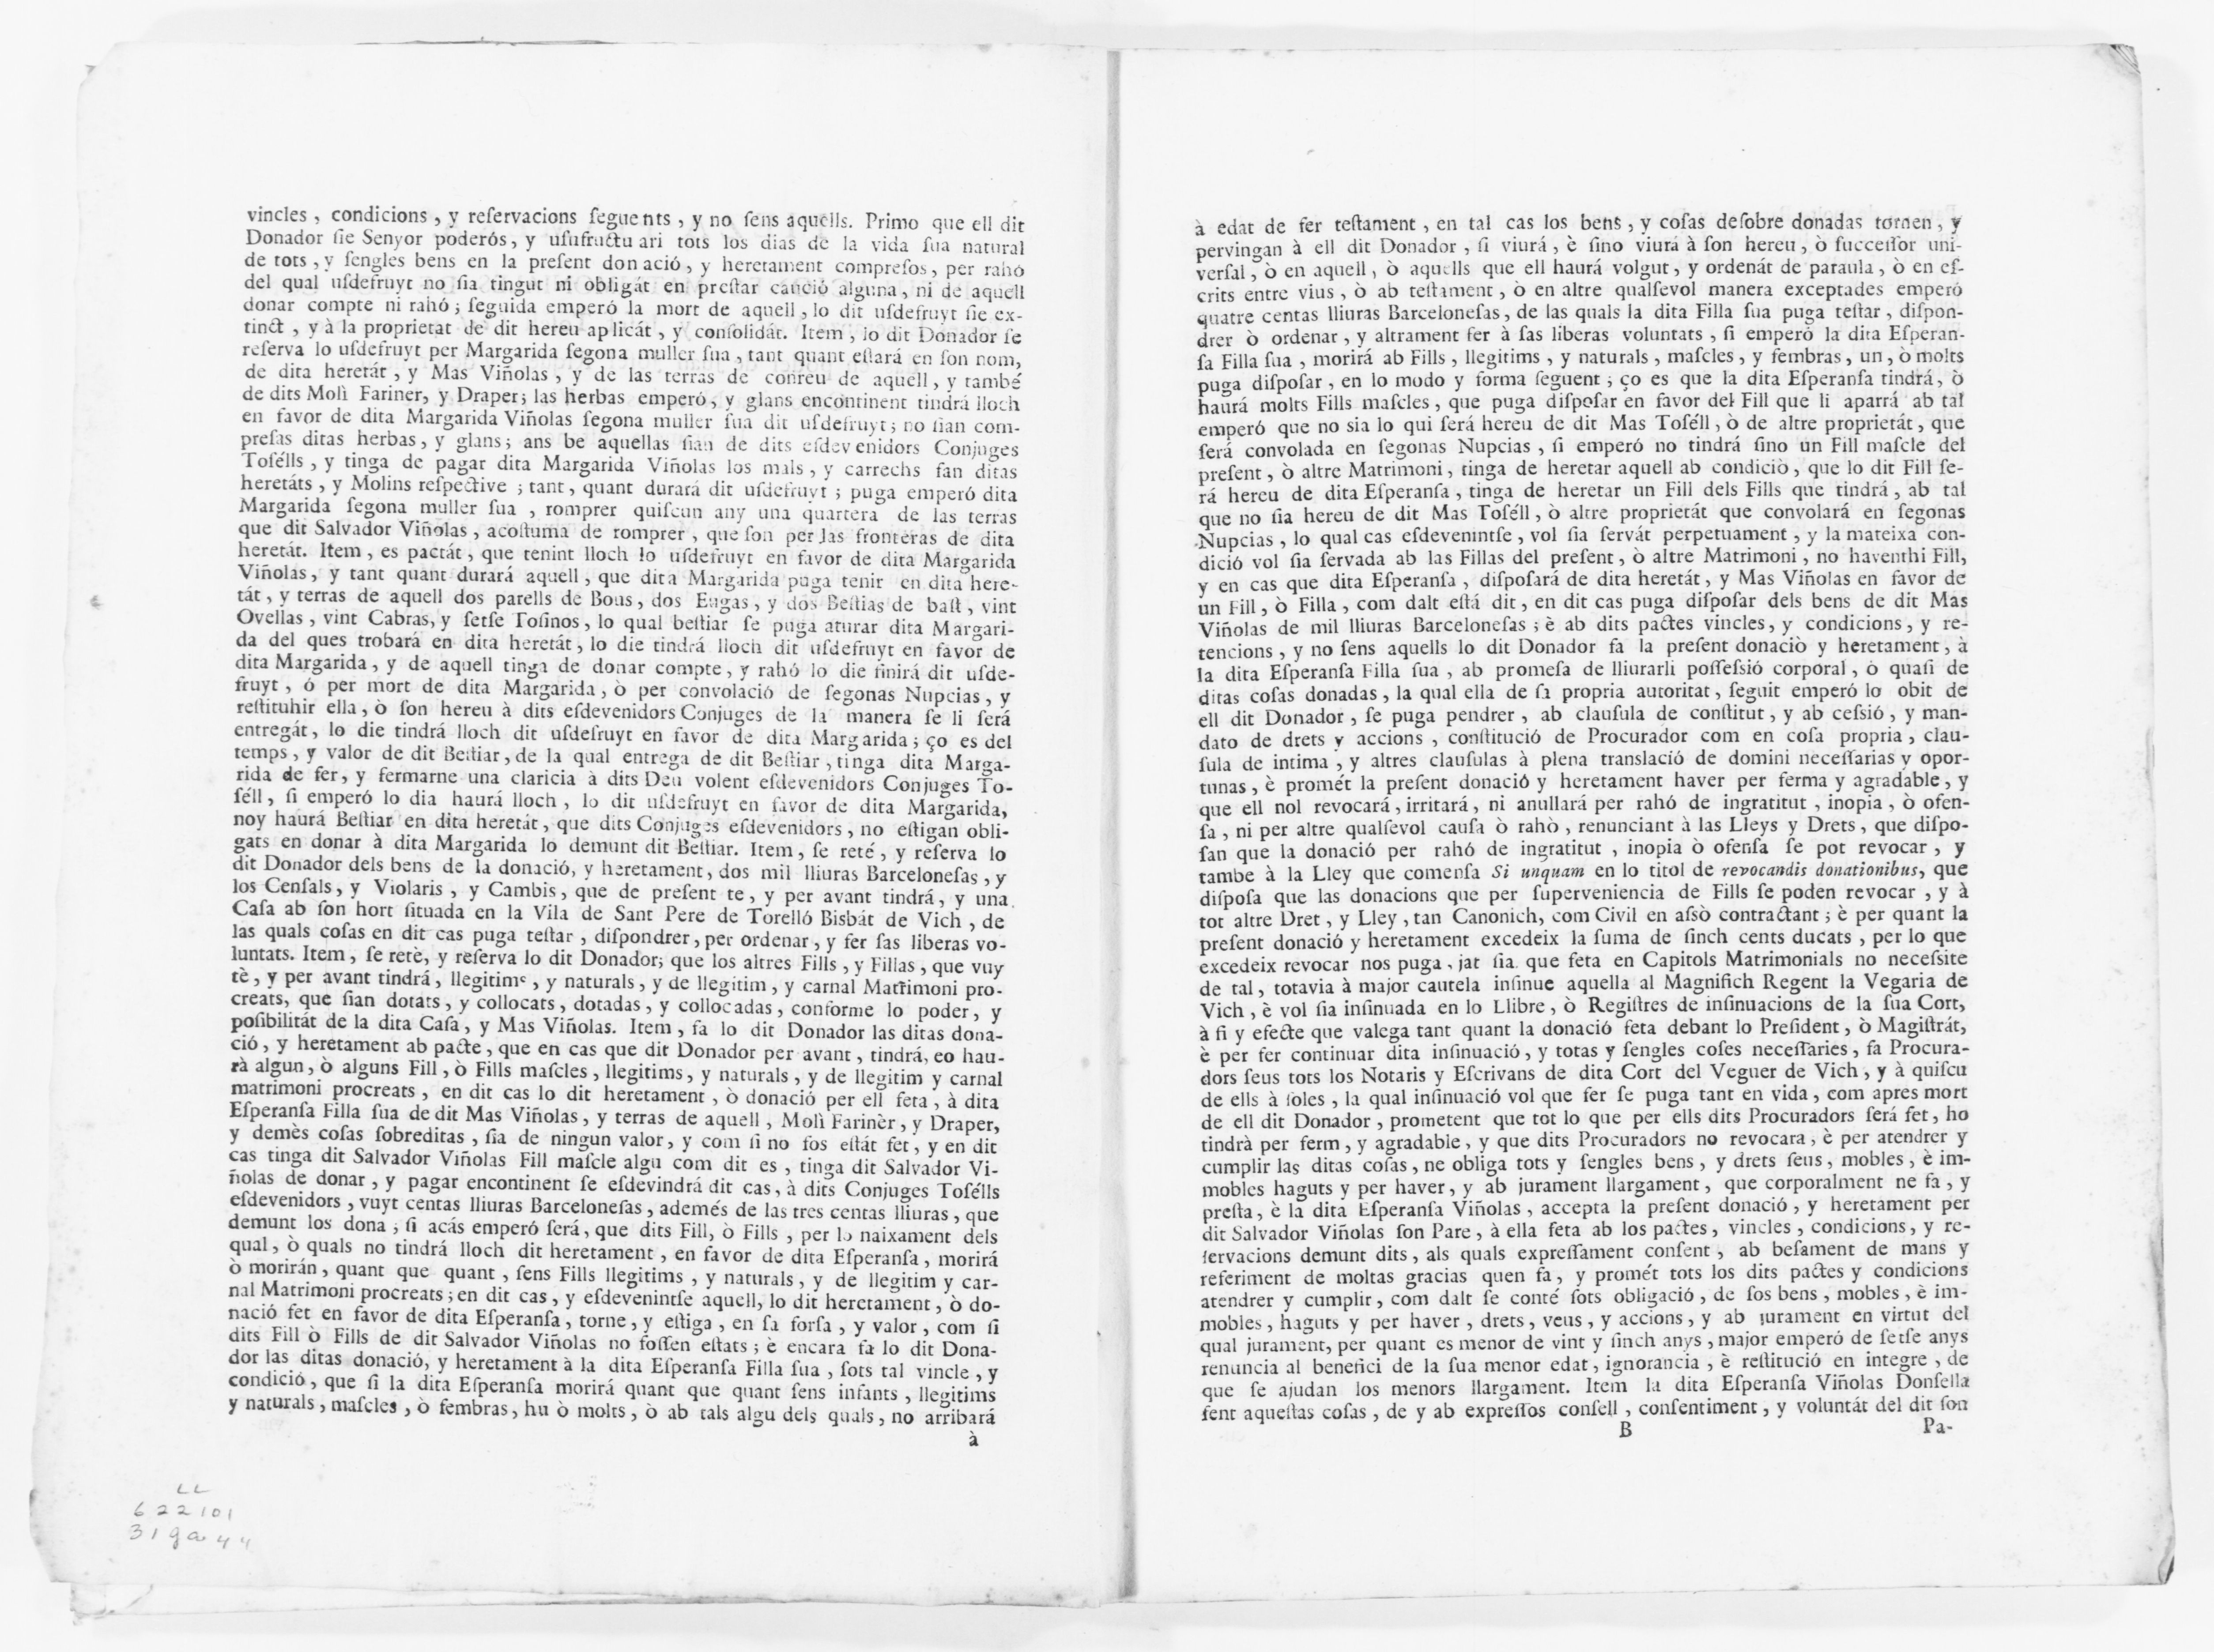 vincles , condicions , y reſervacions ſeguents , y no ſens aquells. Primo que ell dit
Donador ſie Senyor poderós, y uſufructuari tots los dias de la vida ſua natural
de tots , y ſengles bens en la preſent donació , y heretament compreſos, per rahó
del qual uſdefruyt no ſia tingut ni obligát en preſtar caució alguna, ni de aquell
donar compte ni rahó ; ſeguida emperó la mort de aquell , lo dit uſdefruyt ſie ex-
tinct , y à la proprietat de dit hereu aplicát , y conſolidát. Item , lo dit Donador ſe
reſerva lo uſdefruyt per Margarida ſegona muller ſua , tant quant eſtará en ſon nom,
de dita heretát , y Mas Viñolas , y de las terras de conreu de aquell , y també
de dits Molì Fariner, y Draper; las herbas emperó, y glans encontinent tindrá lloch
en favor de dita Margarida Viñolas ſegona muller ſua dit uſdefruyt; no ſian com-
preſas ditas herbas, y glans; ans be aquellas ſian de dits eſdevenidors Conjuges
Toſélls , y tinga de pagar dita Margarida Viñolas los mals , y carrechs fan ditas
heretáts , y Molins reſpective ; tant , quant durará dit uſdefruyt ; puga emperó dita
Margarida ſegona muller ſua , romprer quiſcun any una quartera de las terras
que dit Salvador Viñolas , acoſtuma de romprer , que ſon per las fronteras de dita
heretát. Item , es pactát , que tenint lloch lo uſdefruyt en favor de dita Margarida
Viñolas, y tant quant durará aquell , que dita Margarida puga tenir en dita here-
tát , y terras de aquell dos parells de Bous, dos Eugas , y dos Beſtias de baſt , vint
Ovellas , vint Cabras, y ſetſe Toſinos, lo qual beſtiar ſe puga aturar dita Margari-
da del ques trobará en dita heretát , lo die tindrá lloch dit uſdefruyt en favor de
dita Margarida , y de aquell tinga de donar compte, y rahó lo die finirá dit uſde-
fruyt , ó per mort de dita Margarida, ò per convolació de ſegonas Nupcias , y
reſtituhir ella, ò ſon hereu à dits eſdevenidors Conjuges de la manera ſe li ſerá
entregát, lo die tindrá lloch dit uſdefruyt en favor de dita Margarida ; ço es del
temps , y valor de dit Beſtiar , de la qual entrega de dit Beſtiar , tinga dita Marga-
rida de fer, y fermarne una claricia à dits Deu volent eſdevenidors Conjuges To-
féll , ſi emperó lo dia haurá lloch , lo dit uſdefruyt en favor de dita Margarida,
noy haurá Beſtiar en dita heretát , que dits Conjuges eſdevenidors , no eſtigan obli-
gats en donar à dita Margarida lo demunt dit Beſtiar. Item, ſe reté , y reſerva lo
dit Donador dels bens de la donació, y heretament, dos mil lliuras Barceloneſas , y
los Cenſals, y Violaris , y Cambis , que de preſent te , y per avant tindrá, y una
Caſa ab ſon hort ſituada en la Vila de Sant Pere de Torelló Bisbát de Vich , de
las quals coſas en dit cas puga teſtar , diſpondrer, per ordenar , y fer ſas liberas vo-
luntats. Item , ſe retè, y reſerva lo dit Donador; que los altres Fills , y Fillas , que vuy
tè , y per avant tindrá, llegitims , y naturals , y de llegitim, y carnal Matrimoni pro-
creats, que ſian dotats , y collocats , dotadas , y collocadas , conforme lo poder, y
poſibilitát de la dita Caſa , y Mas Viñolas. Item , fa lo dit Donador las ditas dona-
ció , y heretament ab pacte , que en cas que dit Donador per avant , tindrá, eo hau-
rà algun, ò alguns Fill , ò Fills maſcles , llegitims, y naturals , y de llegitim y carnal
matrimoni procreats , en dit cas lo dit heretament , ò donació per ell feta , à dita
Eſperanſa Filla ſua de dit Mas Viñolas , y terras de aquell , Molì Farinèr, y Draper,
y demès coſas ſobreditas , ſia de ningun valor, y com ſi no fos eſtát fet , y en dit
cas tinga dit Salvador Viñolas Fill maſcle algu com dit es , tinga dit Salvador Vi-
ñolas de donar , y pagar encontinent ſe eſdevindrá dit cas , à dits Conjuges Toſélls
eſdevenidors , vuyt centas lliuras Barceloneſas , ademés de las tres centas lliuras , que
demunt los dona ; ſi acás emperó ſerá, que dits Fill, ò Fills , per lo naixament dels
qual, ò quals no tindrá lloch dit heretament , en favor de dita Eſperanſa , morirá
ò morirán , quant que quant , ſens Fills llegitims , y naturals , y de llegitim y car-
nal Matrimoni procreats ; en dit cas , y eſdevenintſe aquell, lo dit heretament , ò do-
nació fet en favor de dita Eſperanſa , torne , y eſtiga , en ſa forſa , y valor , com ſi
dits Fill ò Fills de dit Salvador Viñolas no foſſen eſtats ; è encara fa lo dit Dona-
dor las ditas donació, y heretament à la dita Eſperanſa Filla ſua , ſots tal vincle , y
condició , que ſi la dita Eſperanſa morirá quant que quant ſens infants , llegitims
y naturals , maſcles , ò fembras , hu ò molts , ò ab tals algu dels quals , no arribará
à
LL
622101
31ga44
à edat de fer teſtament , en tal cas los bens , y coſas deſobre donadas tornen , y
pervingan à ell dit Donador , ſi viurá , è ſino viurá à ſon hereu , ò ſucceſſor uni-
verſal , ò en aquell , ò aquells que ell haurá volgut , y ordenát de paraula , ò en eſ-
crits entre vius , ò ab teſtament , ò en altre qualſevol manera exceptades emperó
quatre centas lliuras Barceloneſas, de las quals la dita Filla ſua puga teſtar , diſpon-
drer ò ordenar , y altrament fer à ſas liberas voluntats , ſi emperó la dita Eſperan-
ſa Filla ſua , morirá ab Fills , llegitims , y naturals , maſcles , y fembras , un , ò molts
puga diſpoſar , en lo modo y forma ſeguent ; ço es que la dita Eſperanſa tindrá, ò
haurá molts Fills maſcles , que puga diſpoſar en favor del Fill que li aparrá ab tal
emperó que no sia lo qui ſerá hereu de dit Mas Toſéll , ò de altre proprietát , que
ſerá convolada en ſegonas Nupcias , ſi emperó no tindrá ſino un Fill maſcle del
preſent , ò altre Matrimoni , tinga de heretar aquell ab condiciò , que lo dit Fill ſe-
rá hereu de dita Eſperanſa , tinga de heretar un Fill dels Fills que tindrá , ab tal
que no ſia hereu de dit Mas Toſéll , ò altre proprietát que convolará en ſegonas
Nupcias , lo qual cas eſdevenintſe , vol ſia ſervát perpetuament , y la mateixa con-
dició vol ſia ſervada ab las Fillas del preſent , ò altre Matrimoni , no haventhi Fill,
y en cas que dita Eſperanſa , diſpoſará de dita heretát , y Mas Viñolas en favor de
un Fill , ò Filla , com dalt eſtá dit , en dit cas puga diſpoſar dels bens de dit Mas
Viñolas de mil lliuras Barceloneſas ; è ab dits pactes vincles, y condicions , y re-
tencions , y no ſens aquells lo dit Donador fa la preſent donaciò y heretament , à
la dita Eſperanſa Filla ſua , ab promeſa de lliurarli poſſeſsió corporal , ò quaſi de
ditas coſas donadas , la qual ella de ſa propria autoritat , ſeguit emperó lo obit de
ell dit Donador , ſe puga pendrer , ab clauſula de conſtitut , y ab ceſsió , y man-
dato de drets y accions , conſtitució de Procurador com en coſa propria , clau-
ſula de intima , y altres clauſulas à plena translació de domini neceſſarias y opor-
tunas , è promét la preſent donació y heretament haver per ferma y agradable , y
que ell nol revocará , irritará , ni anullará per rahó de ingratitut , inopia , ò ofen-
ſa , ni per altre qualſevol cauſa ò rahò , renunciant à las Lleys y Drets , que diſpo-
ſan que la donació per rahó de ingratitut , inopia ò ofenſa ſe pot revocar , y
tambe à la Lley que comenſa Si unquam en lo titol de revocandis donationibus, que
diſpoſa que las donacions que per ſuperveniencia de Fills ſe poden revocar , y à
tot altre Dret , y Lley , tan Canonich, com Civil en aſsò contractant ; è per quant la
preſent donació y heretament excedeix la ſuma de ſinch cents ducats , per lo que
excedeix revocar nos puga , jat ſia que feta en Capitols Matrimonials no neceſsite
de tal , totavia à major cautela inſinue aquella al Magnifich Regent la Vegaria de
Vich , è vol ſia inſinuada en lo Llibre , ò Regiſtres de inſinuacions de la ſua Cort,
à fi y efecte que valega tant quant la donació feta debant lo Preſident , ò Magiſtrát,
è per fer continuar dita inſinuació , y totas y ſengles coſes neceſſaries , fa Procura-
dors ſeus tots los Notaris y Eſcrivans de dita Cort del Veguer de Vich , y à quiſcu
de ells à ſoles , la qual inſinuació vol que fer ſe puga tant en vida , com apres mort
de ell dit Donador , prometent que tot lo que per ells dits Procuradors ſerá fet , ho
tindrà per ferm , y agradable , y que dits Procuradors no revocara , è per atendrer y
cumplir las ditas coſas , ne obliga tots y ſengles bens , y drets ſeus , mobles , è im-
mobles haguts y per haver , y ab jurament llargament , que corporalment ne fa , y
preſta , è la dita Eſperanſa Viñolas , accepta la preſent donació , y heretament per
dit Salvador Viñolas ſon Pare , à ella feta ab los pactes , vincles , condicions , y re-
ſervacions demunt dits , als quals expreſſament conſent , ab beſament de mans y
referiment de moltas gracias quen fa , y promét tots los dits pactes y condicions
atendrer y cumplir , com dalt ſe conté ſots obligació , de ſos bens , mobles , è im-
mobles , haguts y per haver , drets , veus , y accions , y ab jurament en virtut del
qual jurament, per quant es menor de vint y ſinch anys , major emperó de ſetſe anys
renuncia al benefici de la ſua menor edat , ignorancia , è reſtitució en integre , de
que ſe ajudan los menors llargament. Item la dita Eſperanſa Viñolas Donſella
fent aqueſtas coſas , de y ab expreſſos conſell , conſentiment , y voluntát del dit ſon
B
Pa-